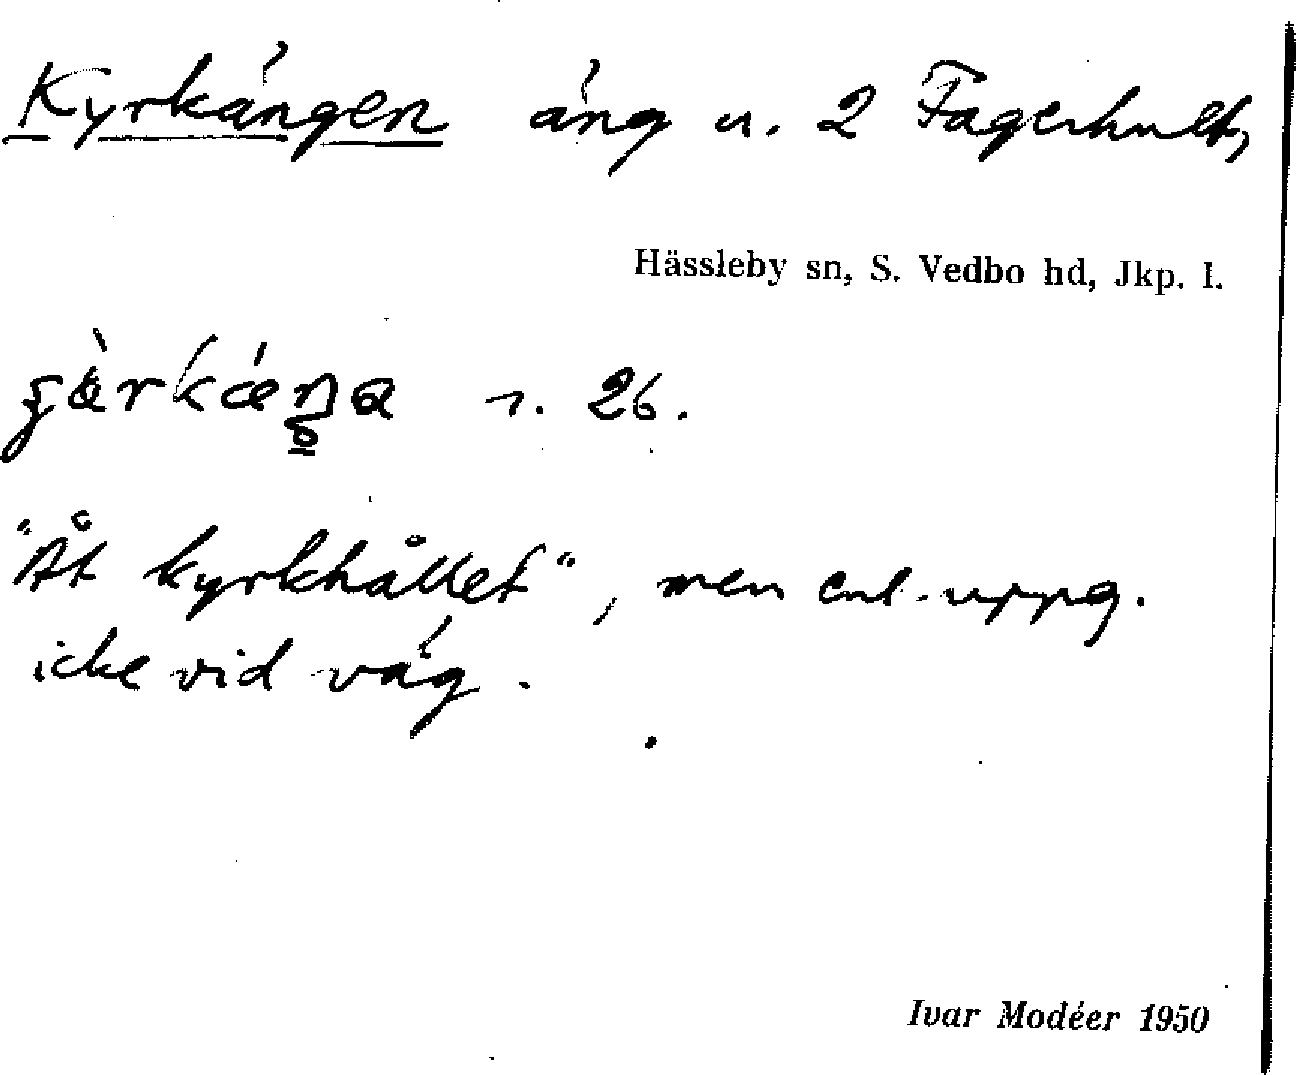 Kyrkängen äng u. 2 Fagerhult,
Hässleby sn, S. Vedbo hd, Jkp. l.
r. 26.
"Åt kyrkhållet", men enl. uppg.
icke vid väg.
Ivar Modéer 1950